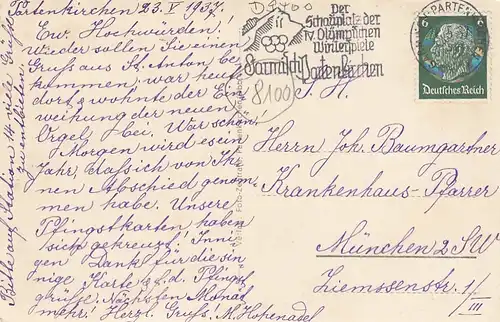 Partenkirchen 23. V 1937.
Ew. Hochwürden!
Wieder sollen Sie einen
Gruß aus St. Anton, be-
kommen, war heute
dort & wohnte der Ein-
weihung der neuen
Orgel bei. War schön!
Morgen wird es ein
Jahr, dass ich von Ih-
nen Abschied genom-
men habe. Unsere
Pfingstkarten haben
sich gekreuzt. Inni-
gen Dank für die sin-
nige Karte & d. Pfingst-
grüße. Nächsten Monat
mehr! Herzl. Gruß! M. Hopenadel
Bitte auf Station 14 viele Grüße
zu entbieten.
Der
Schauplatz der
IV. Olympischen
Winterspiele
Garmisch
Partenkirchen
8100
PARTEN
6 6
Deutsches Reich
S. H.
Herrn Joh. Baumgartner
Krankenhaus-Pfarrer
München 2 SW
Ziemssenstr. 1/
III